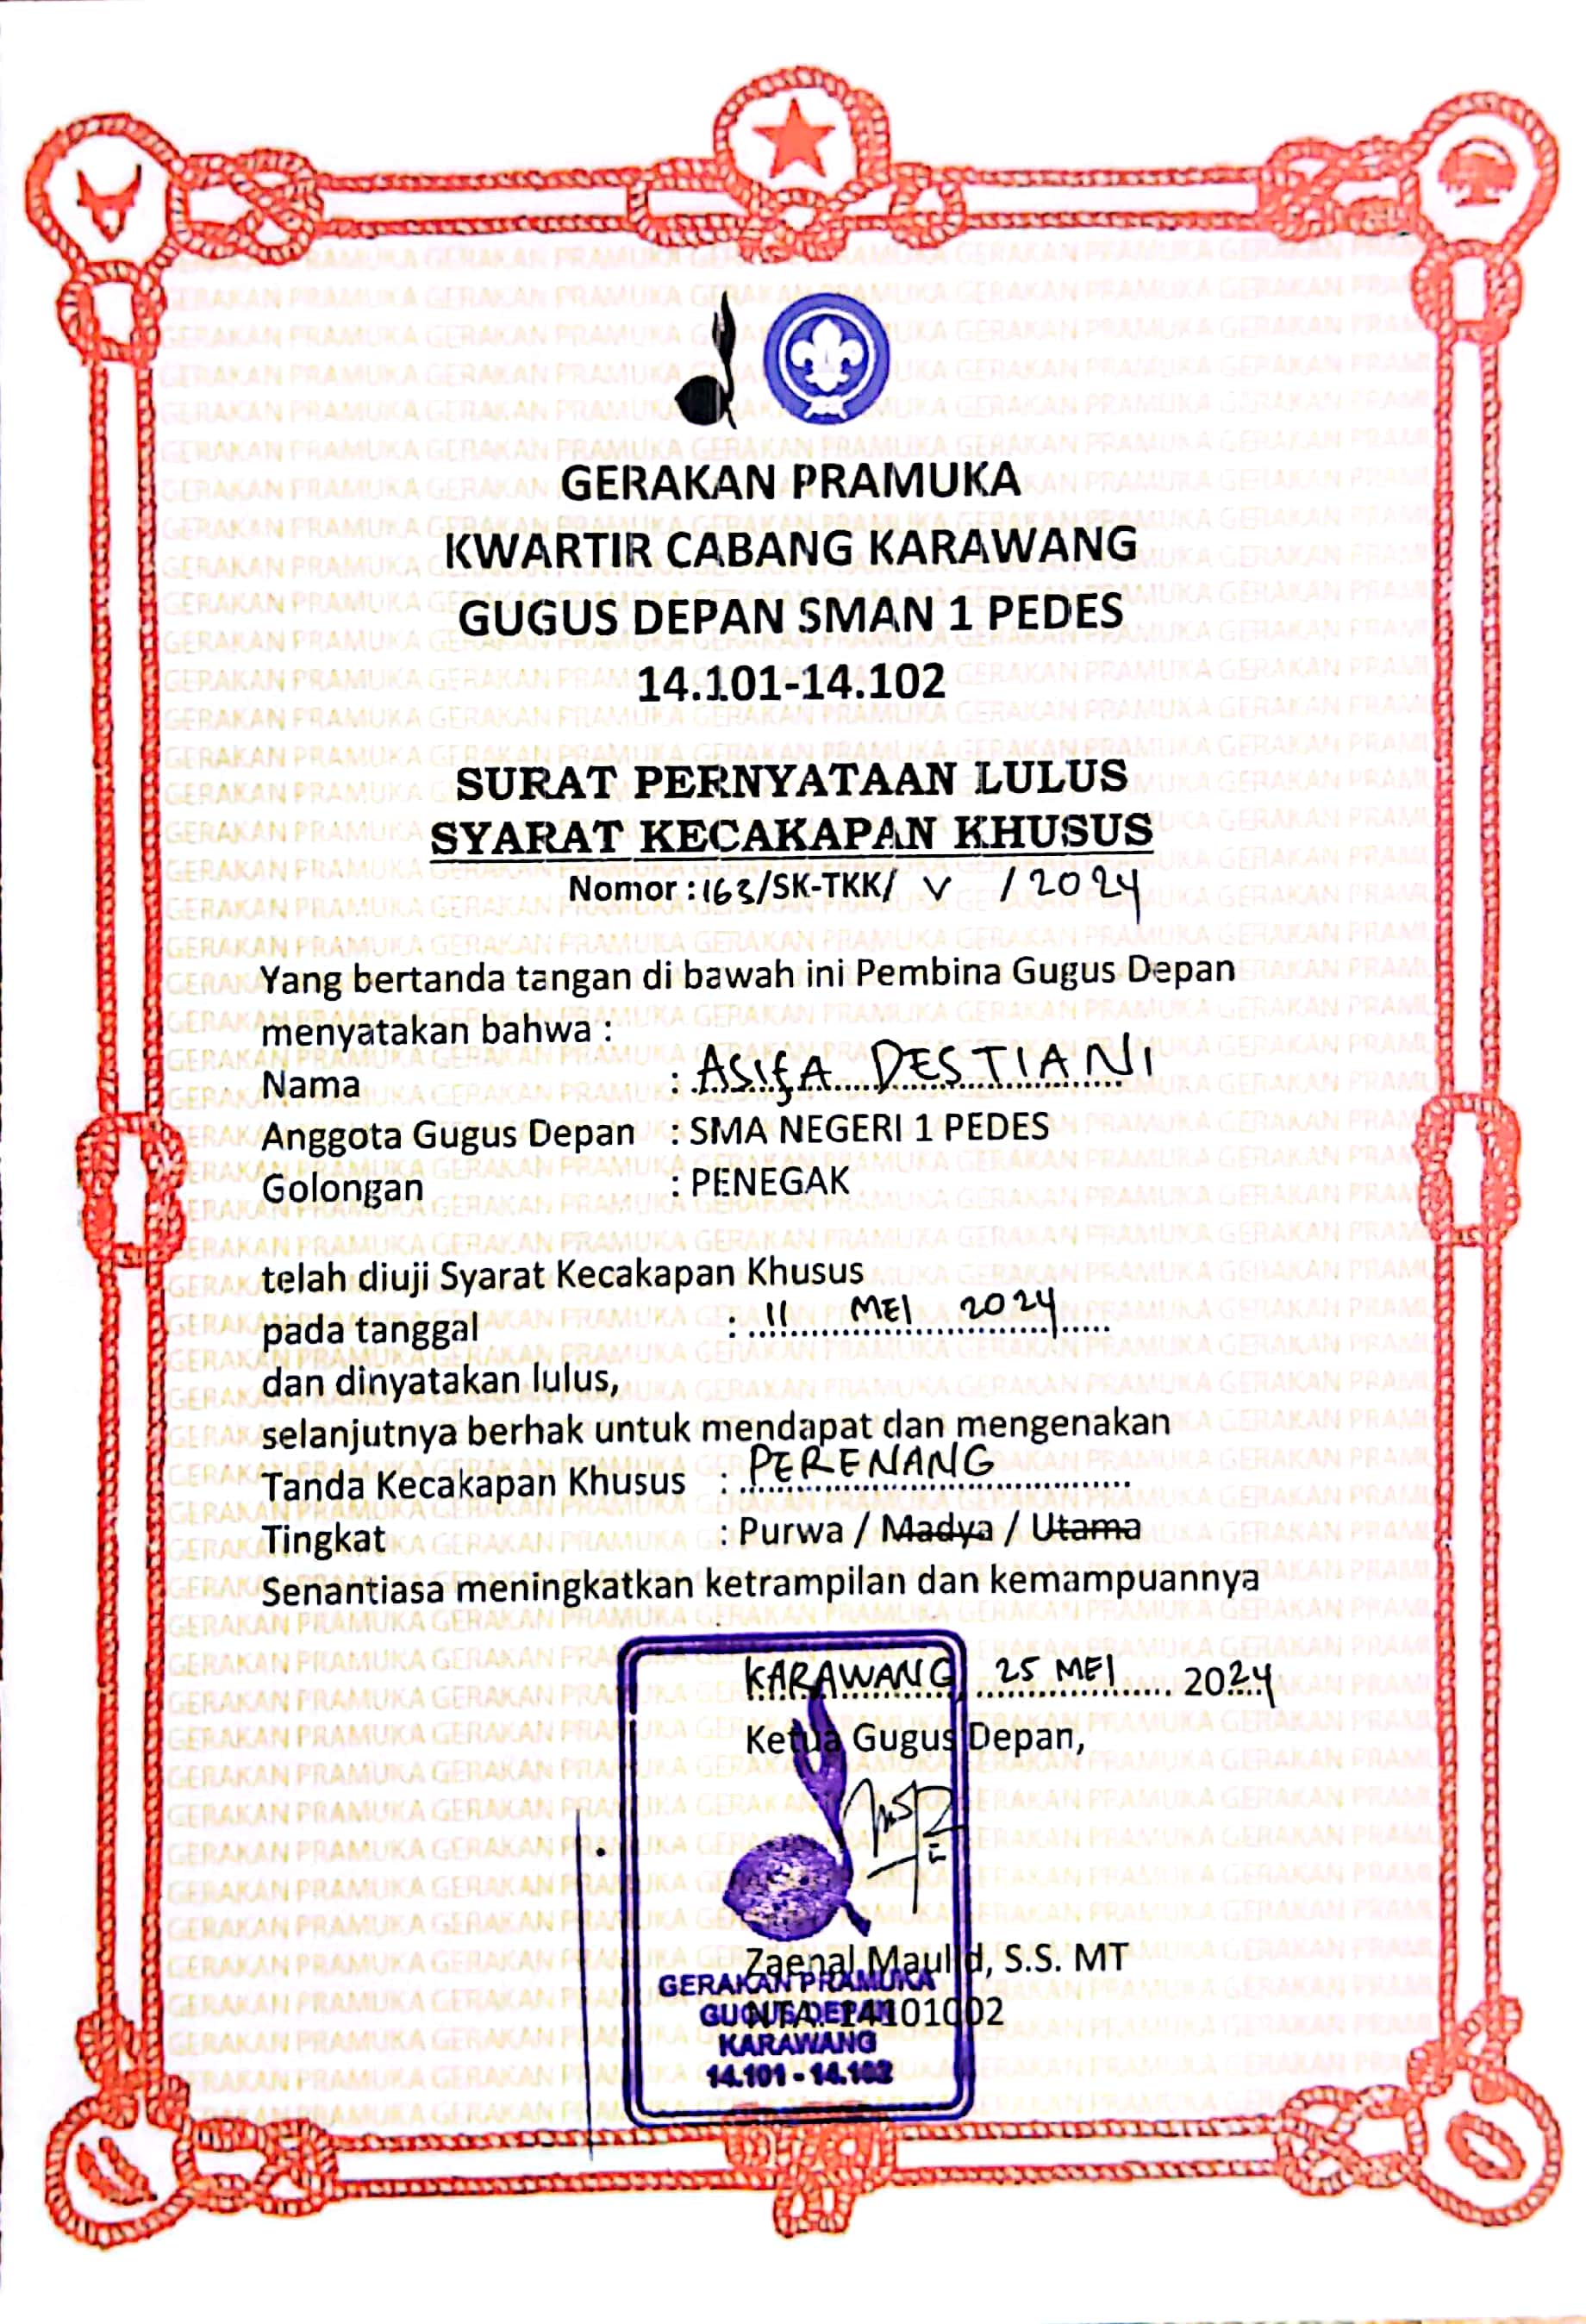 GERAKAN PRAMUKA
KWARTIR CABANG KARAWANG
GUGUS DEPAN SMAN 1 PEDES
14.101-14.102
SURAT PERNYATAAN LULUS
SYARAT KECAKAPAN KHUSUS
Nomor : 163/SK-TKK/ V / 2024
Yang bertanda tangan di bawah ini Pembina Gugus Depan
menyatakan bahwa :
Nama : ASIFA DESTIANI
Anggota Gugus Depan : SMA NEGERI 1 PEDES
Golongan : PENEGAK
telah diuji Syarat Kecakapan Khusus
pada tanggal : 11 MEI 2024
dan dinyatakan lulus,
selanjutnya berhak untuk mendapat dan mengenakan
Tanda Kecakapan Khusus : PERENANG
Tingkat : Purwa / Madya / Utama
Senantiasa meningkatkan ketrampilan dan kemampuannya
KARAWANG, 25 MEI 2024
Ketua Gugus Depan,
Zaenal Maulid, S.S. MT
NTA. 14101002
GERAKAN PRAMUKA
GUGUS DEPAN
KARAWANG
14.101 - 14.102